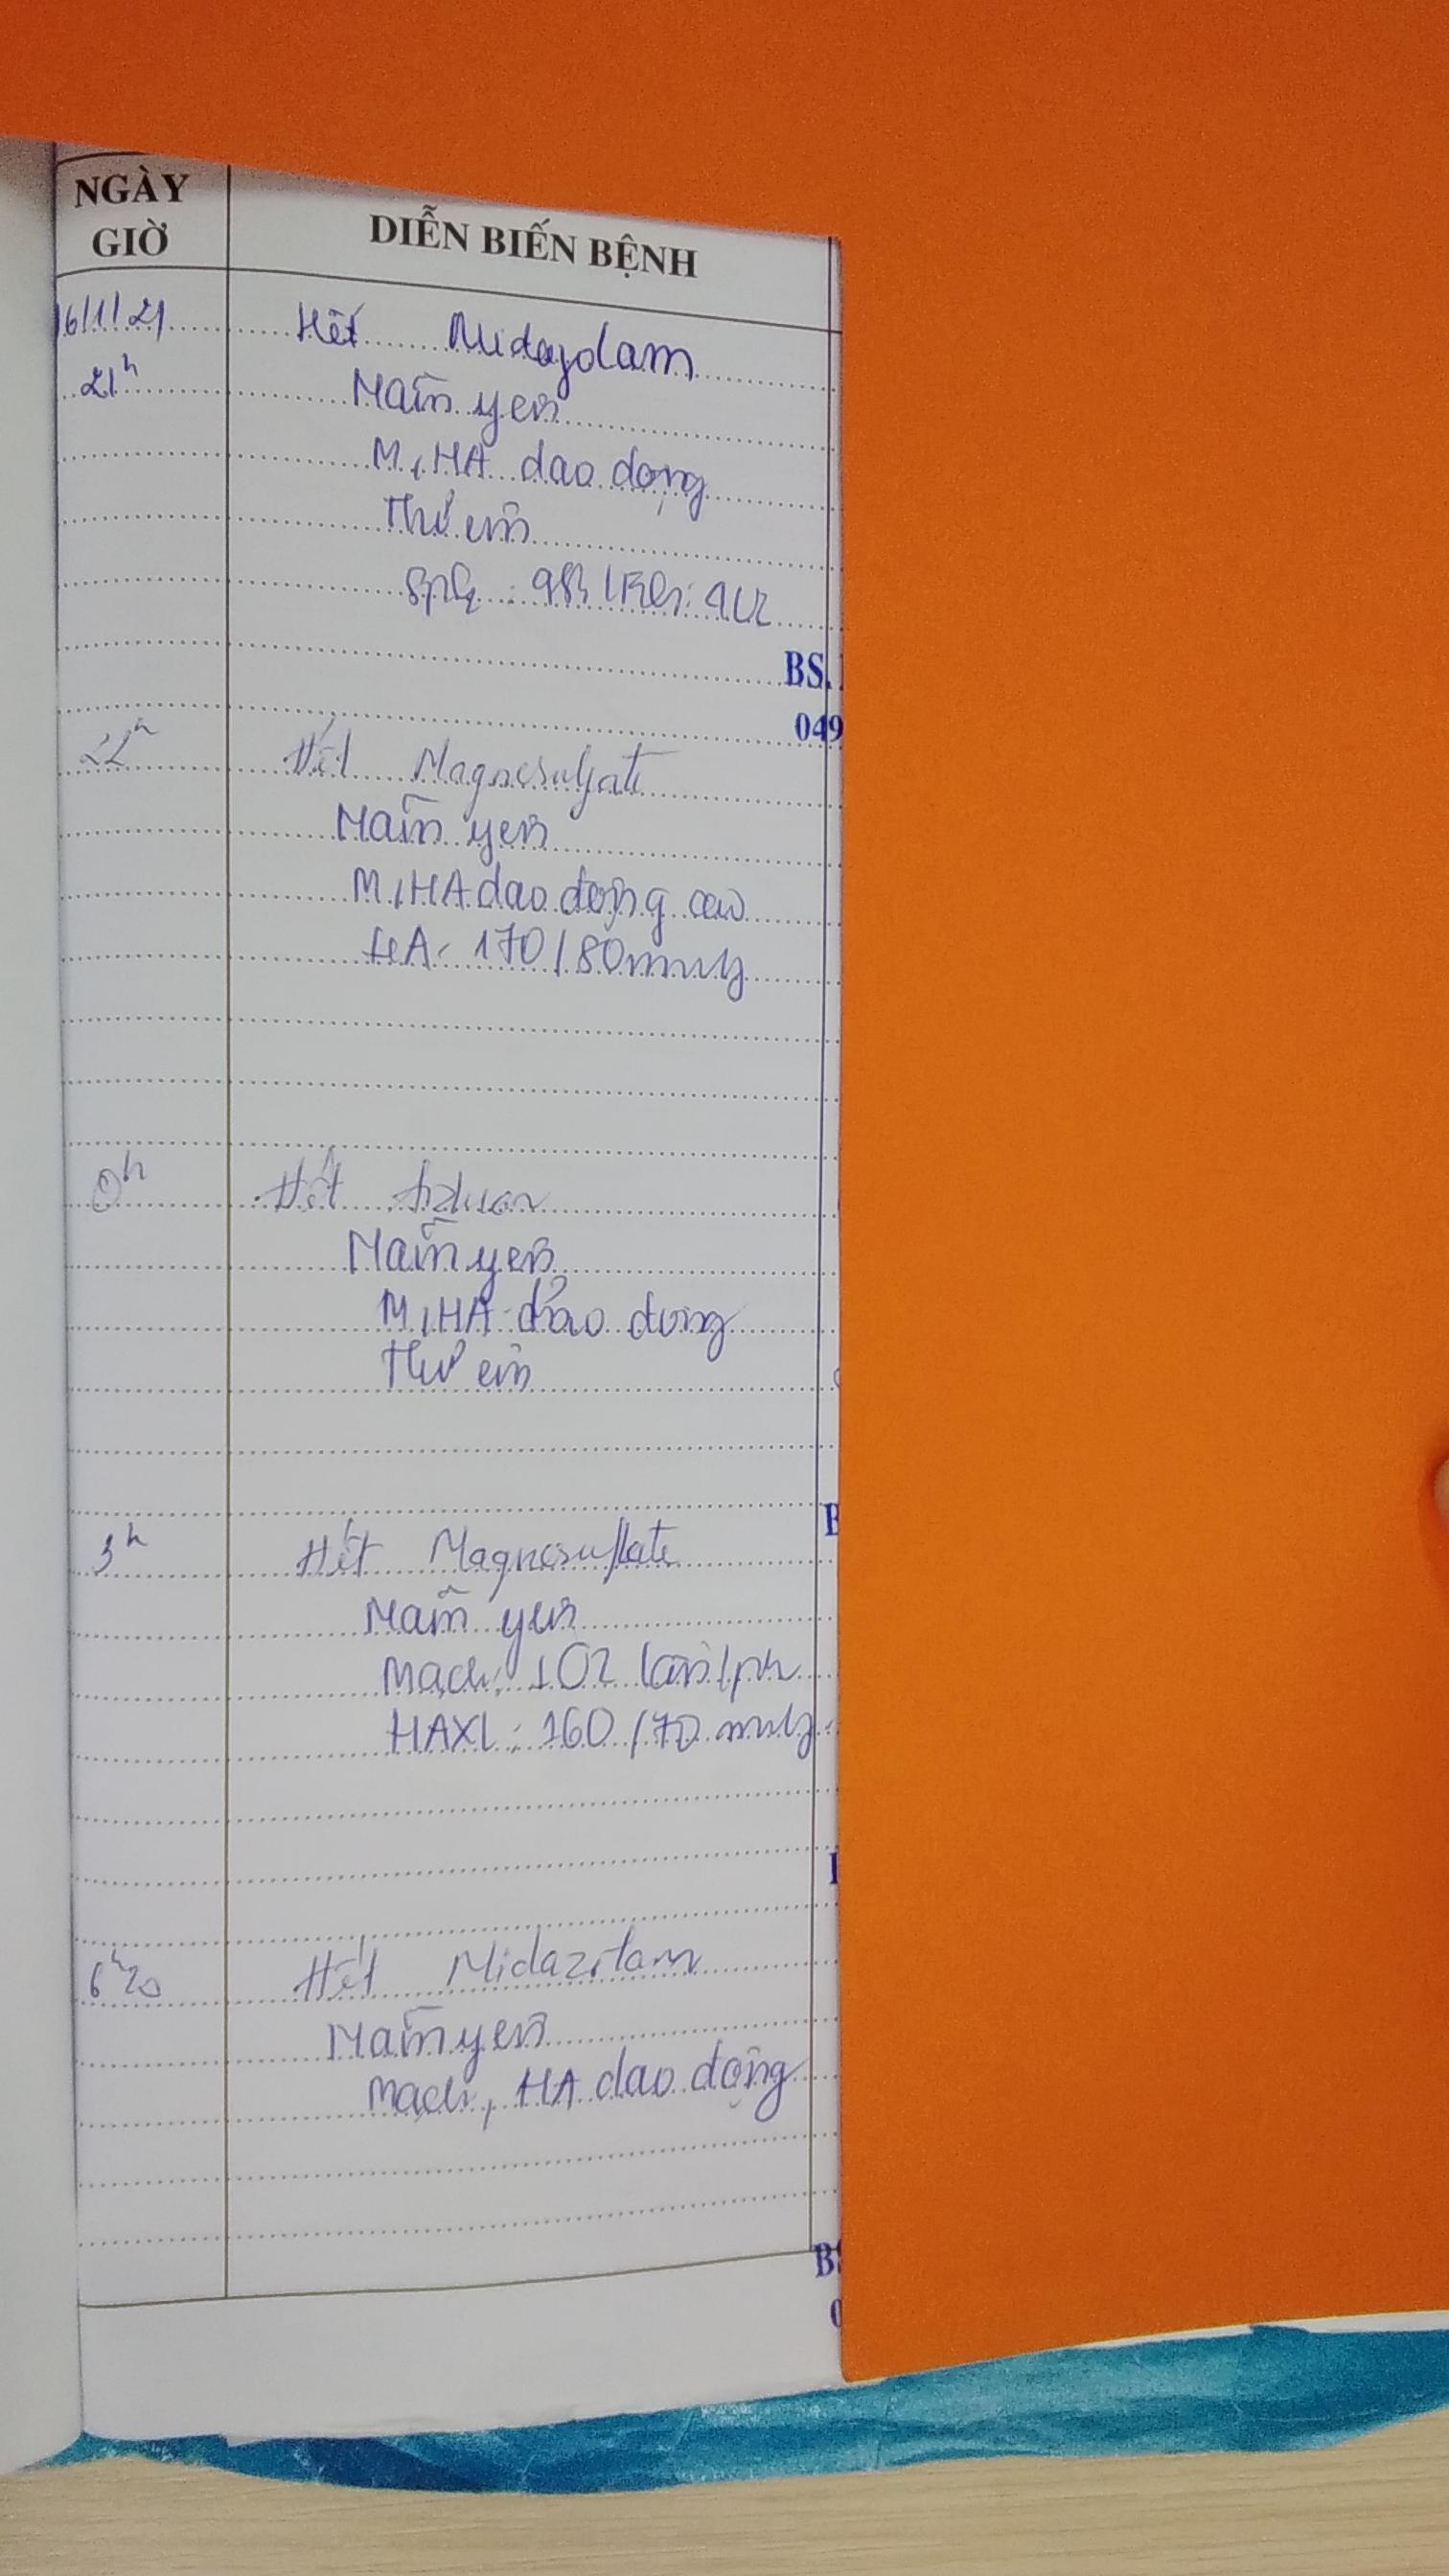 NGÀY
GIỜ
DIỄN BIẾN BỆNH
16/1/21 Hết Midazolam
21h Nằm yên
M, HA dao động
Thở êm
SpO2 : 98%
BS.
049
22h Hết Magnesulfate
Nằm yên
M, HA dao động cao
HA: 170/80mmHg
0h Hết
Nằm yên
M, HA dao động
Thở êm
3h Hết Magnesulfate
Nằm yên
Mạch: 102 lần/ph
HAXL: 160/70 mmHg
6h20 Hết Midazolam
Nằm yên
Mạch, HA dao động